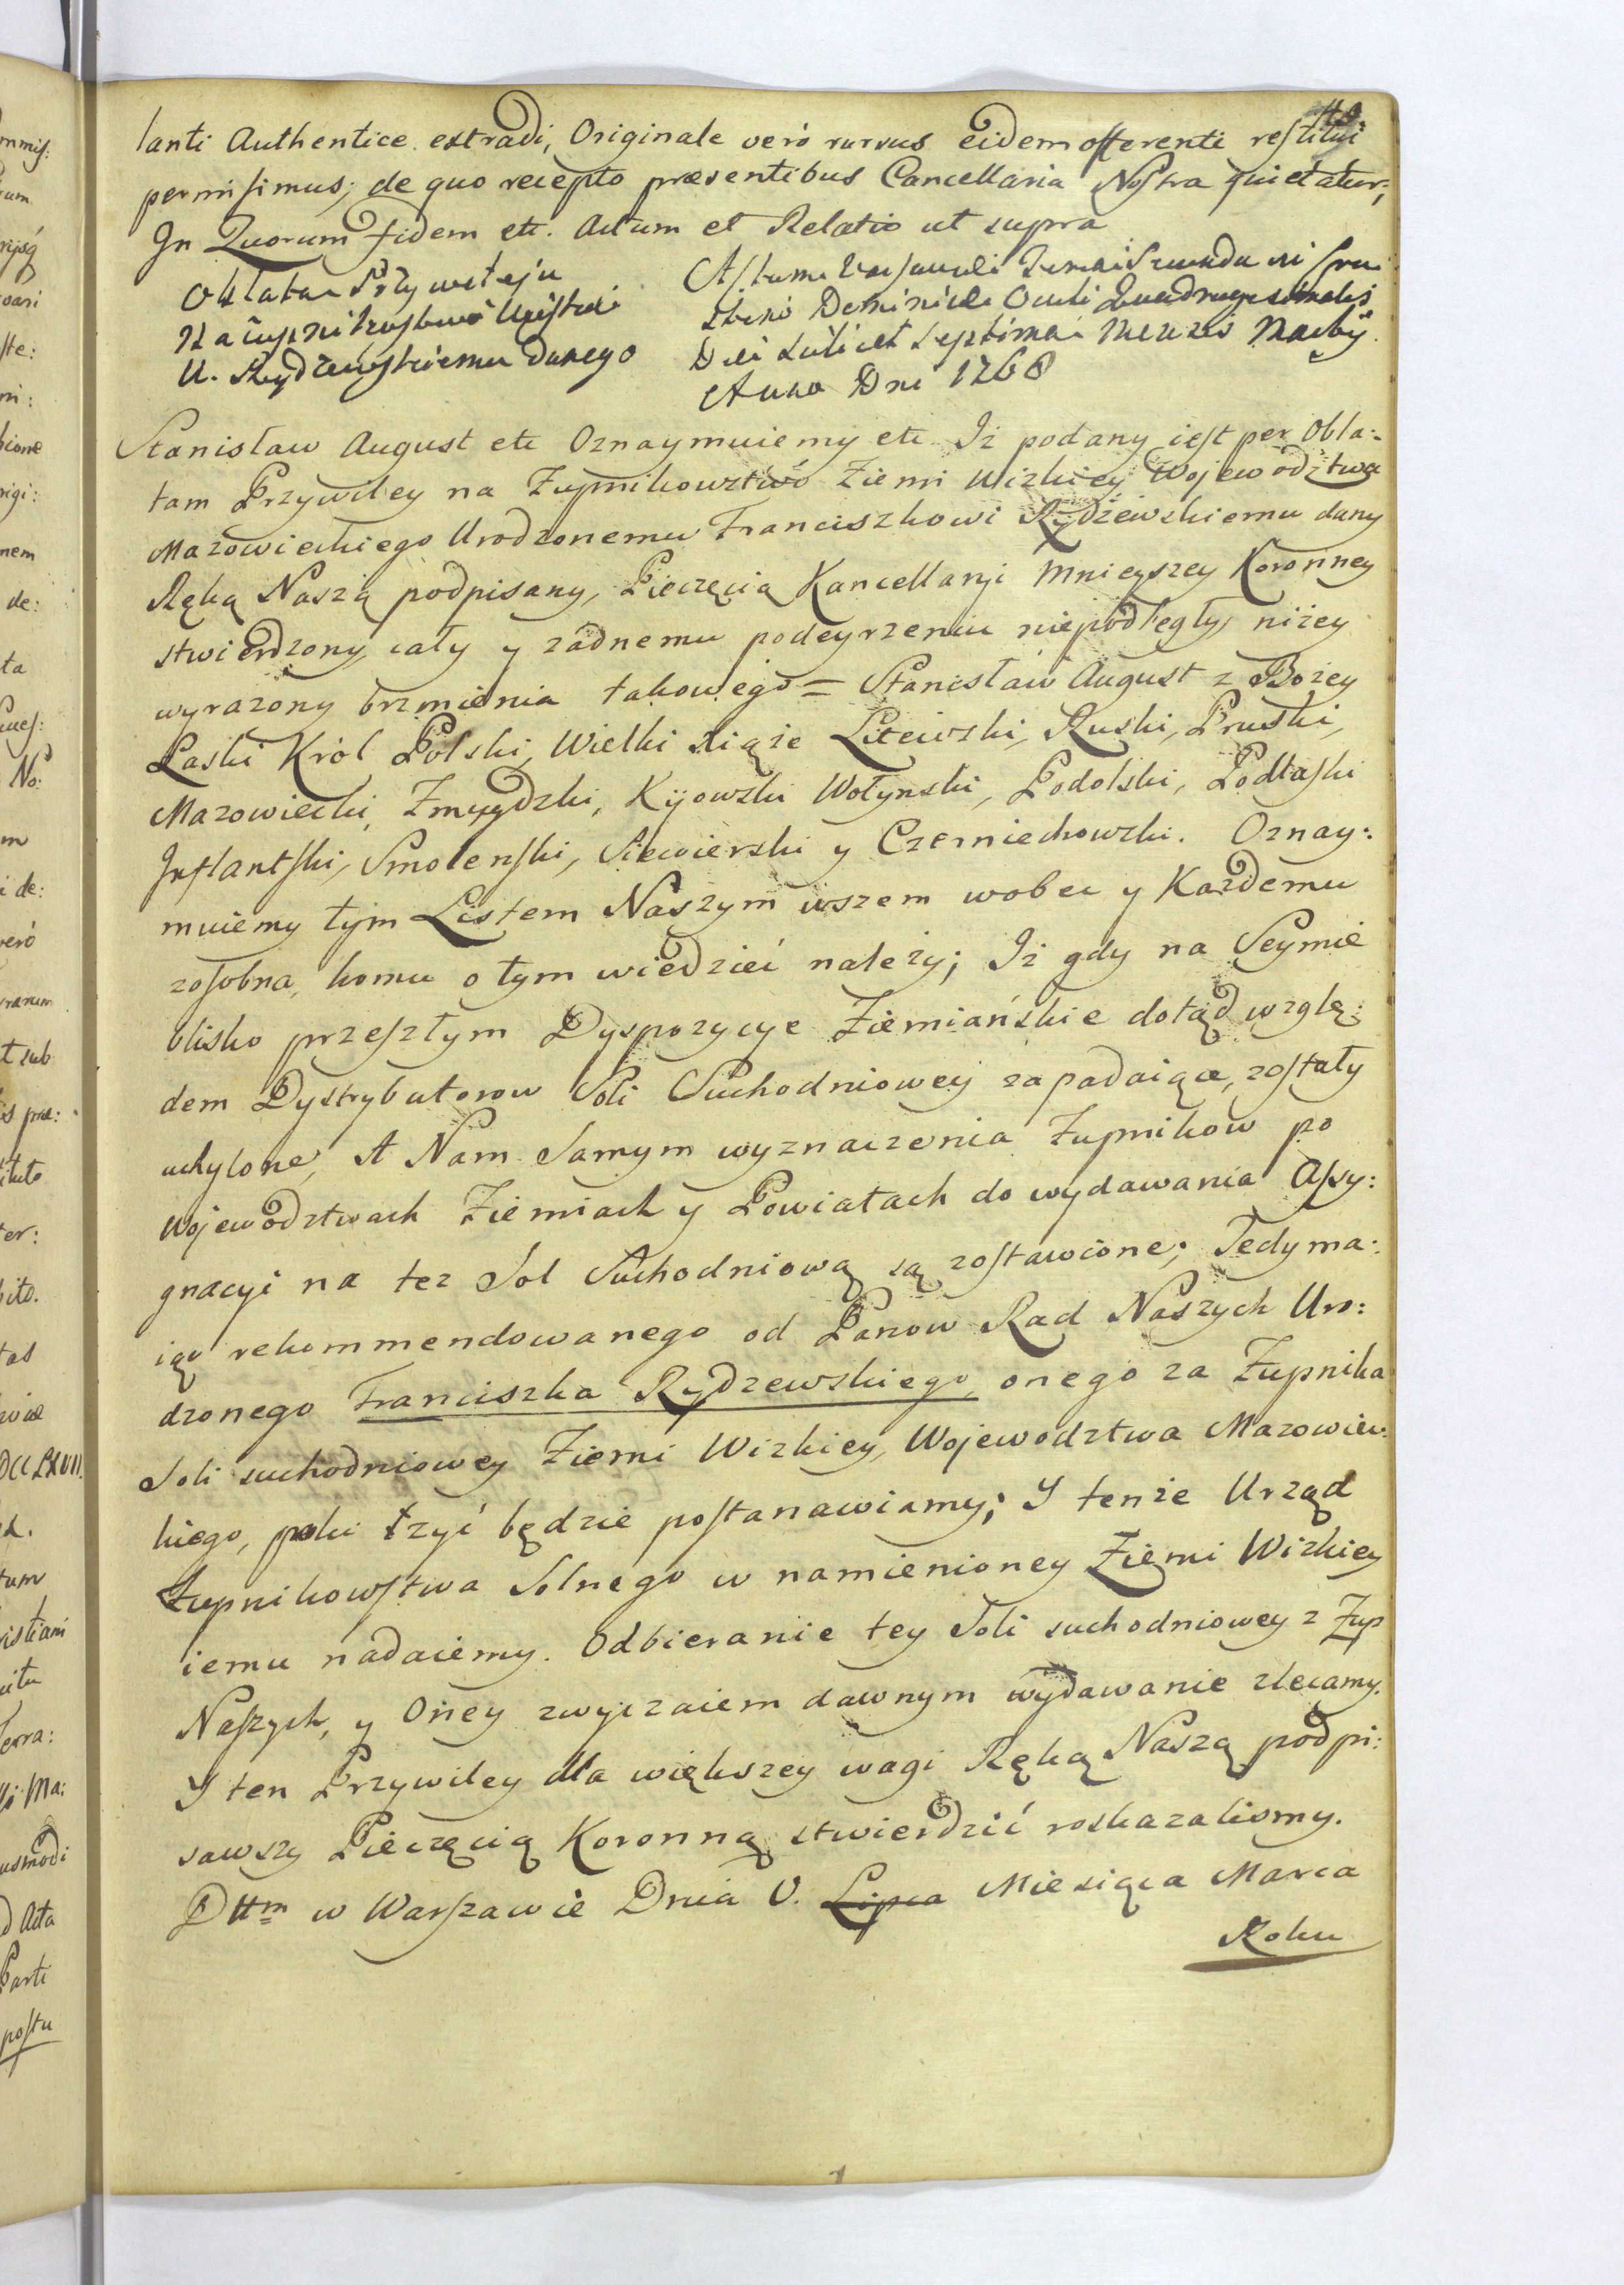 lanti Authentice extradi, Originale verò rursus eidem offerenti restitui
permisimus; de quo recepto præsentibus Cancellaria Nostra quietatur,
In Quorum fidem etc. Actum et Relatio ut supra
Oblata Przywileju
Na Żupnikostwo Wizkie
U. Rydzewskiemu danego
Actum Varsaviæ Feria Secunda
Dominicæ Oculi Quadragesimalis
Die scilicet Septima Mensis Martÿ
Anno Dni 1768
Stanisław August etc Oznaymuiemy etc Iż podany iest per Obla:
tam Przywiley na Żupnikowstwo Ziemi Wizkiey Wojewodztwa
Mazowieckiego Urodzonemu Franciszkowi Rydzewskiemu dany
Ręką Naszą podpisany, Pieczęcią Kancellaryi Mnieyszey Koronney
stwierdzony, cały y żadnemu podeyrzeniu niepodległy, niżey
wyrażony brzmienia takowego = Stanisław August z Bożey
Łaski Król Polski, Wielki Xiąże Litewski, Ruski, Pruski,
Mazowiecki, Zmuydzki, Kijowski Wołynski, Podolski, Podlaski
Inflantski, Smolenski, Siewierski y Czerniechowski. Oznay:
muiemy tym Listem Naszym wszem wobec y Każdemu
zosobna, komu o tym wiedzieć należy; Iż gdy na Seymie
blisko przeszłym Dyspozycye Ziemiańskie dotąd wzglę:
dem Dystrybutorow Soli Suchodniowey zapadaiące, zostały
uchylone, A Nam Samym wyznaczenia Żupnikow po
Wojewodztwach Ziemiach y Powiatach do wydawania Assy:
gnacyi na tez Sol Suchodniową są zostawione; Tedy ma:
iąc rekommendowanego od Panow Rad Naszych Uro:
dzonego Franciszka Rydzewskiego, onego za Żupnika
Soli suchodniowey Ziemi Wizkiey, Wojewodztwa Mazowiec:
kiego, poki żyć będzie postanawiamy; Y tenże Urząd
Żupnikowstwa Solnego w namienioney Ziemi Wizkiey
iemu nadaiemy. Odbieranie tey Soli suchodniowey z Żup
Naszych, y Oney zwyczaiem dawnym wydawanie zlecamy.
Y ten Przywiley dla większey wagi Ręką Naszą podpi:
sawszy Pieczęcią Koronną stwierdzić roskazalismy.
Dttm w Warszawie Dnia V. Lipca Miesiąca Marca
Roku